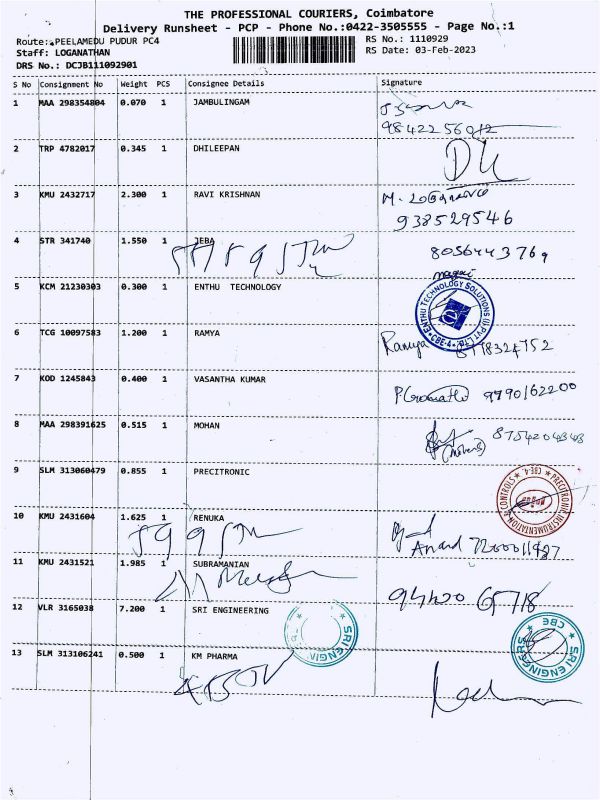 THE PROFESSIONAL COURIERS, Coimbatore
Delivery Runsheet - PCP - Phone No.:0422-3505555 - Page No.:1
Route: PEELAMEDU PUDUR PC4 RS No.: 1110929
Staff: LOGANATHAN RS Date: 03-Feb-2023
DRS No.: DCJB111092901
S No Consignment No Weight PCS Consignee Details Signature
1 MAA 298354804 0.070 1 JAMBULINGAM
98422 56012
2 TRP 4782017 0.345 1 DHILEEPAN
3 KMU 2432717 2.300 1 RAVI KRISHNAN
938529546
4 STR 341740 1.550 1 JEBA 8056443769
5 KCM 21230303 0.300 1 ENTHU TECHNOLOGY
ENTHU TECHNOLOGY SOLUTIONS (I) PVT LTD CBE-4
6 TCG 10097583 1.200 1 RAMYA
Ramya
7 KOD 1245843 0.400 1 VASANTHA KUMAR
9790162200
8 MAA 298391625 0.515 1 MOHAN 8754204343
9 SLM 313060479 0.855 1 PRECITRONIC
PRECITRONIC INSTRUMENTATION CONTROLS CBE-4.
10 KMU 2431604 1.625 1 RENUKA
Anand
11 KMU 2431521 1.985 1 SUBRAMANIAN
12 VLR 3165038 7.200 1 SRI ENGINEERING
SRI ENGIN
SRI ENGINEERS CBE
13 SLM 313106241 0.500 1 KM PHARMA